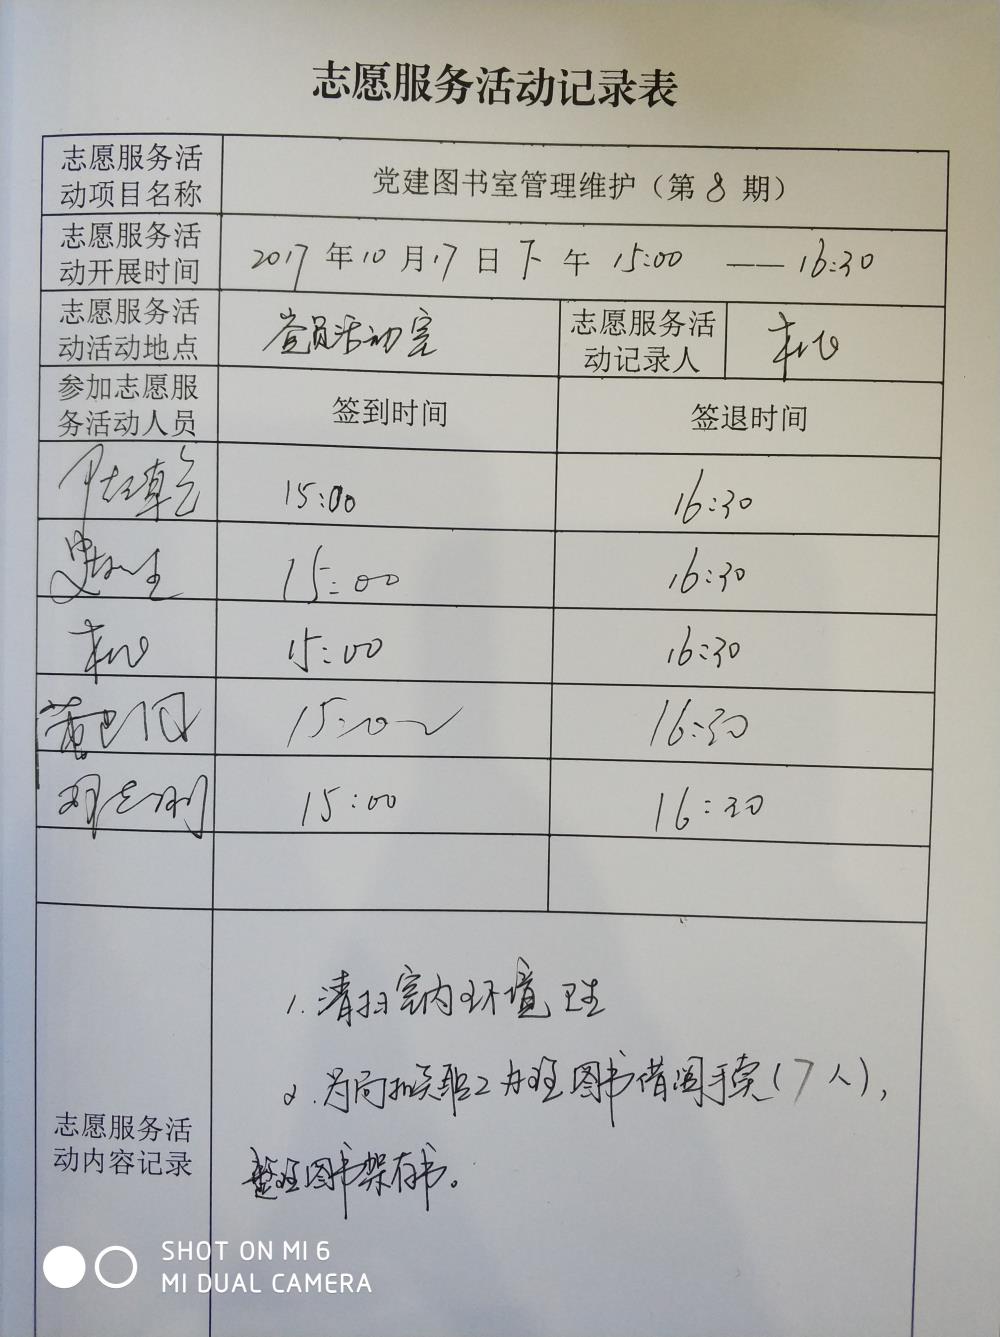 志愿服务活动记录表
志愿服务活
动项目名称
党建图书室管理维护（第 8 期）
志愿服务活
动开展时间
2017 年 10 月 17 日 下 午 15:00 —— 16:30
志愿服务活
动活动地点
党员活动室
志愿服务活
动记录人
参加志愿服
务活动人员
签到时间
签退时间
15:00
16:30
15:00
16:30
15:00
16:30
15:00
16:30
邓志刚
15:00
16:30
志愿服务活
动内容记录
1. 清扫室内环境卫生
2. 为局机关职工办理图书借阅手续（7人），
整理图书架存书。
SHOT ON MI 6
MI DUAL CAMERA